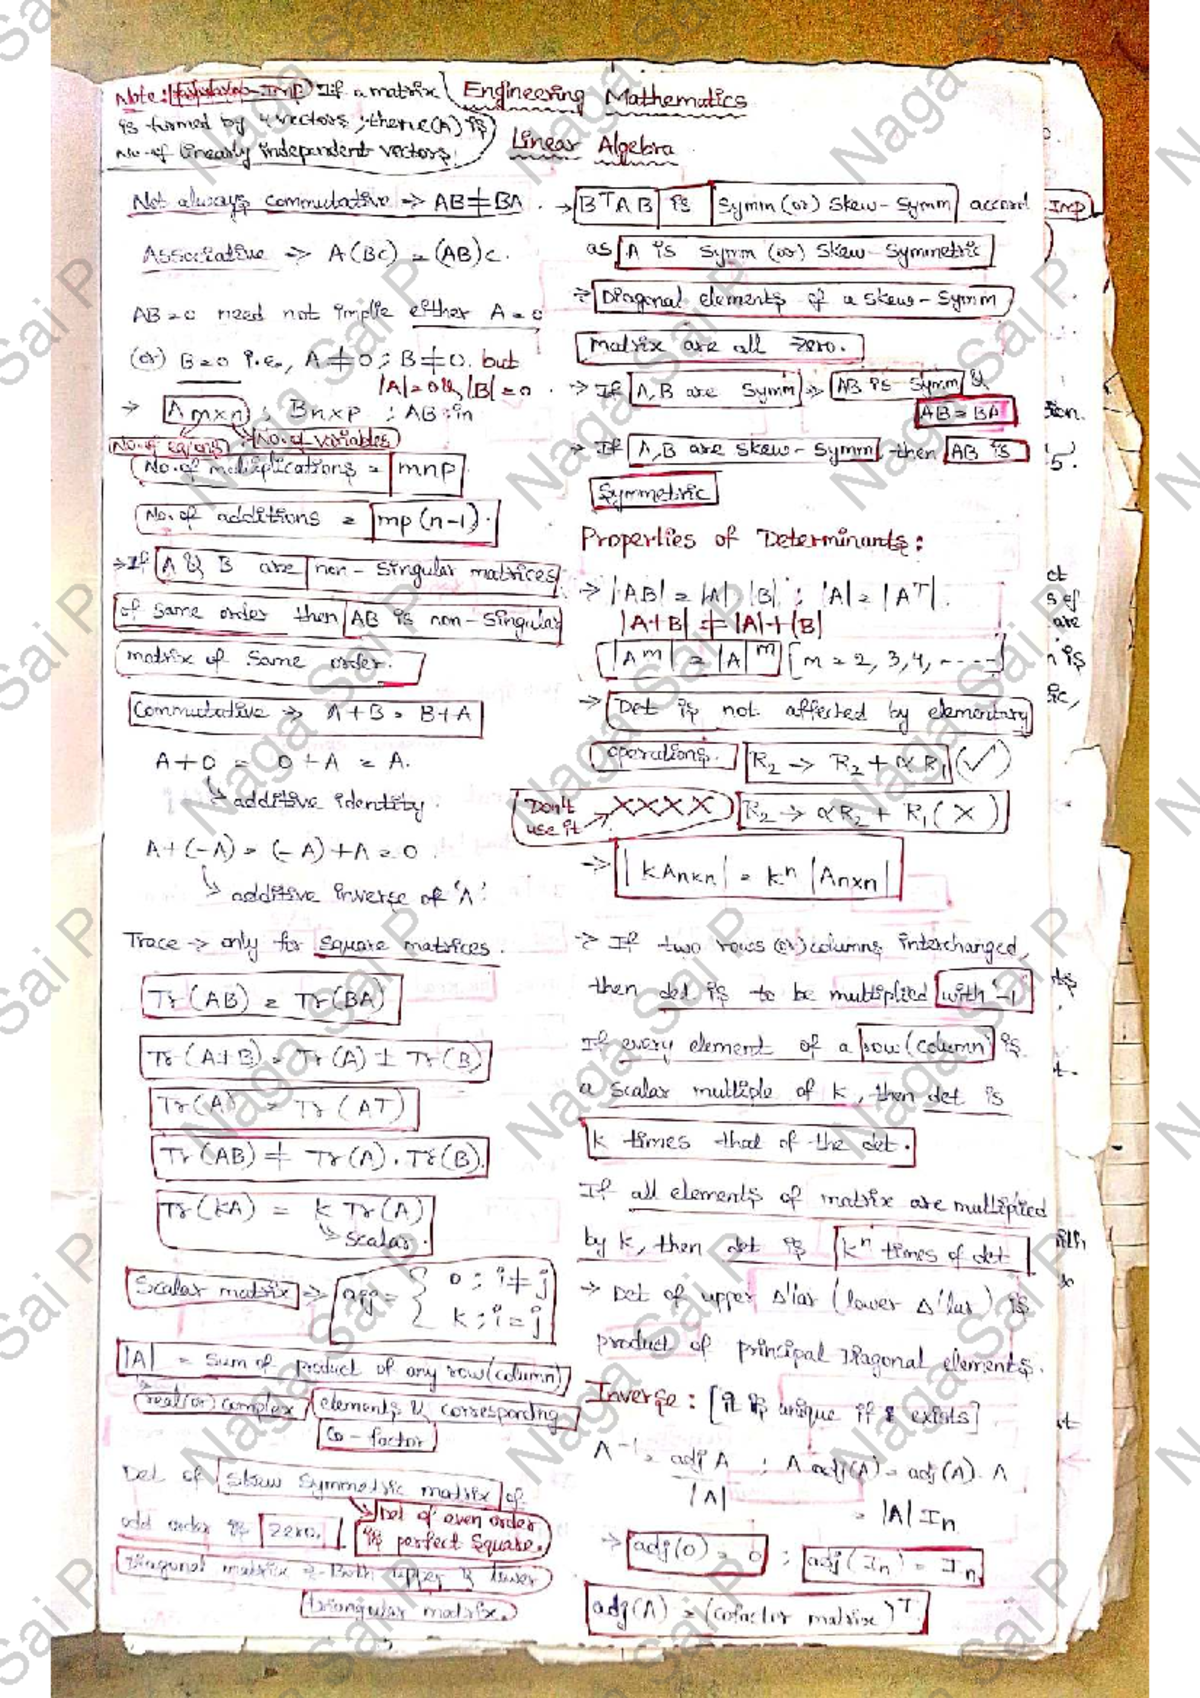 Engineering Mathematics
Linear Algebra
Note: Imp If a matrix
is formed by 4 vectors; then ρ(A) is
No. of linearly independent vectors.
Not always commutative → AB ≠ BA.
Associative → A(BC) = (AB)C.
AB = 0 need not implie either A = 0
(or) B = 0 i.e., A ≠ 0 ; B ≠ 0. but
|A| = 0 & |B| = 0.
→ A m×n ; B n×p ; AB in
No. of eqions No. of variables
No. of multiplications = mnp
No. of additions = mp(n-1).
→ If A & B are non-singular matrices
of same order then AB is non-singular
matrix of same order.
Commutative → A + B = B + A
A + 0 = 0 + A = A.
↳ additive identity.
A + (-A) = (-A) + A = 0.
↳ additive inverse of 'A'
Trace → only for square matrices.
Tr(AB) = Tr(BA)
Tr(A±B) = Tr(A) ± Tr(B)
Tr(A) = Tr(AT)
Tr(AB) ≠ Tr(A). Tr(B).
Tr(KA) = K Tr(A)
↳ scalar.
Scalar matrix → aij = { 0 ; i ≠ j
K ; i = j
|A| = sum of product of any row(column)
real(or) complex elements & corresponding
Co-factor
Det of skew symmetric matrix of
odd order is zero. → Det of even order
is perfect square.
Diagonal matrix → Both upper & lower
triangular matrix.
→ BᵀAB is Symm (or) Skew-Symm accord
as A is symm (or) skew-symmetric
→ Diagonal elements of a skew-symm
matrix are all zero.
→ If A, B are symm → AB is symm &
AB = BA
→ If A, B are skew-symm, then AB is
Symmetric
Properties of Determinants:
→ |AB| = |A| |B| ; |A| = |Aᵀ|.
|A+B| ≠ |A|+|B|
|Aᵐ| = |A|ᵐ [m = 2, 3, 4, ----]
→ Det is not affected by elementary
operations. R₂ → R₂ + αR₁ (✓)
Don't use it → XXXX R₂ → αR₂ + R₁ (X)
→ |K A n×n| = Kⁿ |A n×n|
→ If two rows (or) columns interchanged,
then det is to be multiplied with -1
If every element of a row (column) is
a scalar multiple of K, then det is
K times that of the det.
If all elements of matrix are multiplied
by K, then det is Kⁿ times of det
→ Det of upper Δ'lar (lower Δ'lar) is
product of principal Diagonal elements.
Inverse: [it is unique if exists]
A⁻¹ = adj A / |A| ; A adj(A) = adj(A). A
= |A| In
→ adj(0) = 0 ; adj(In) = In
adj(A) = (cofactor matrix)ᵀ
Imp
Naga Sai P